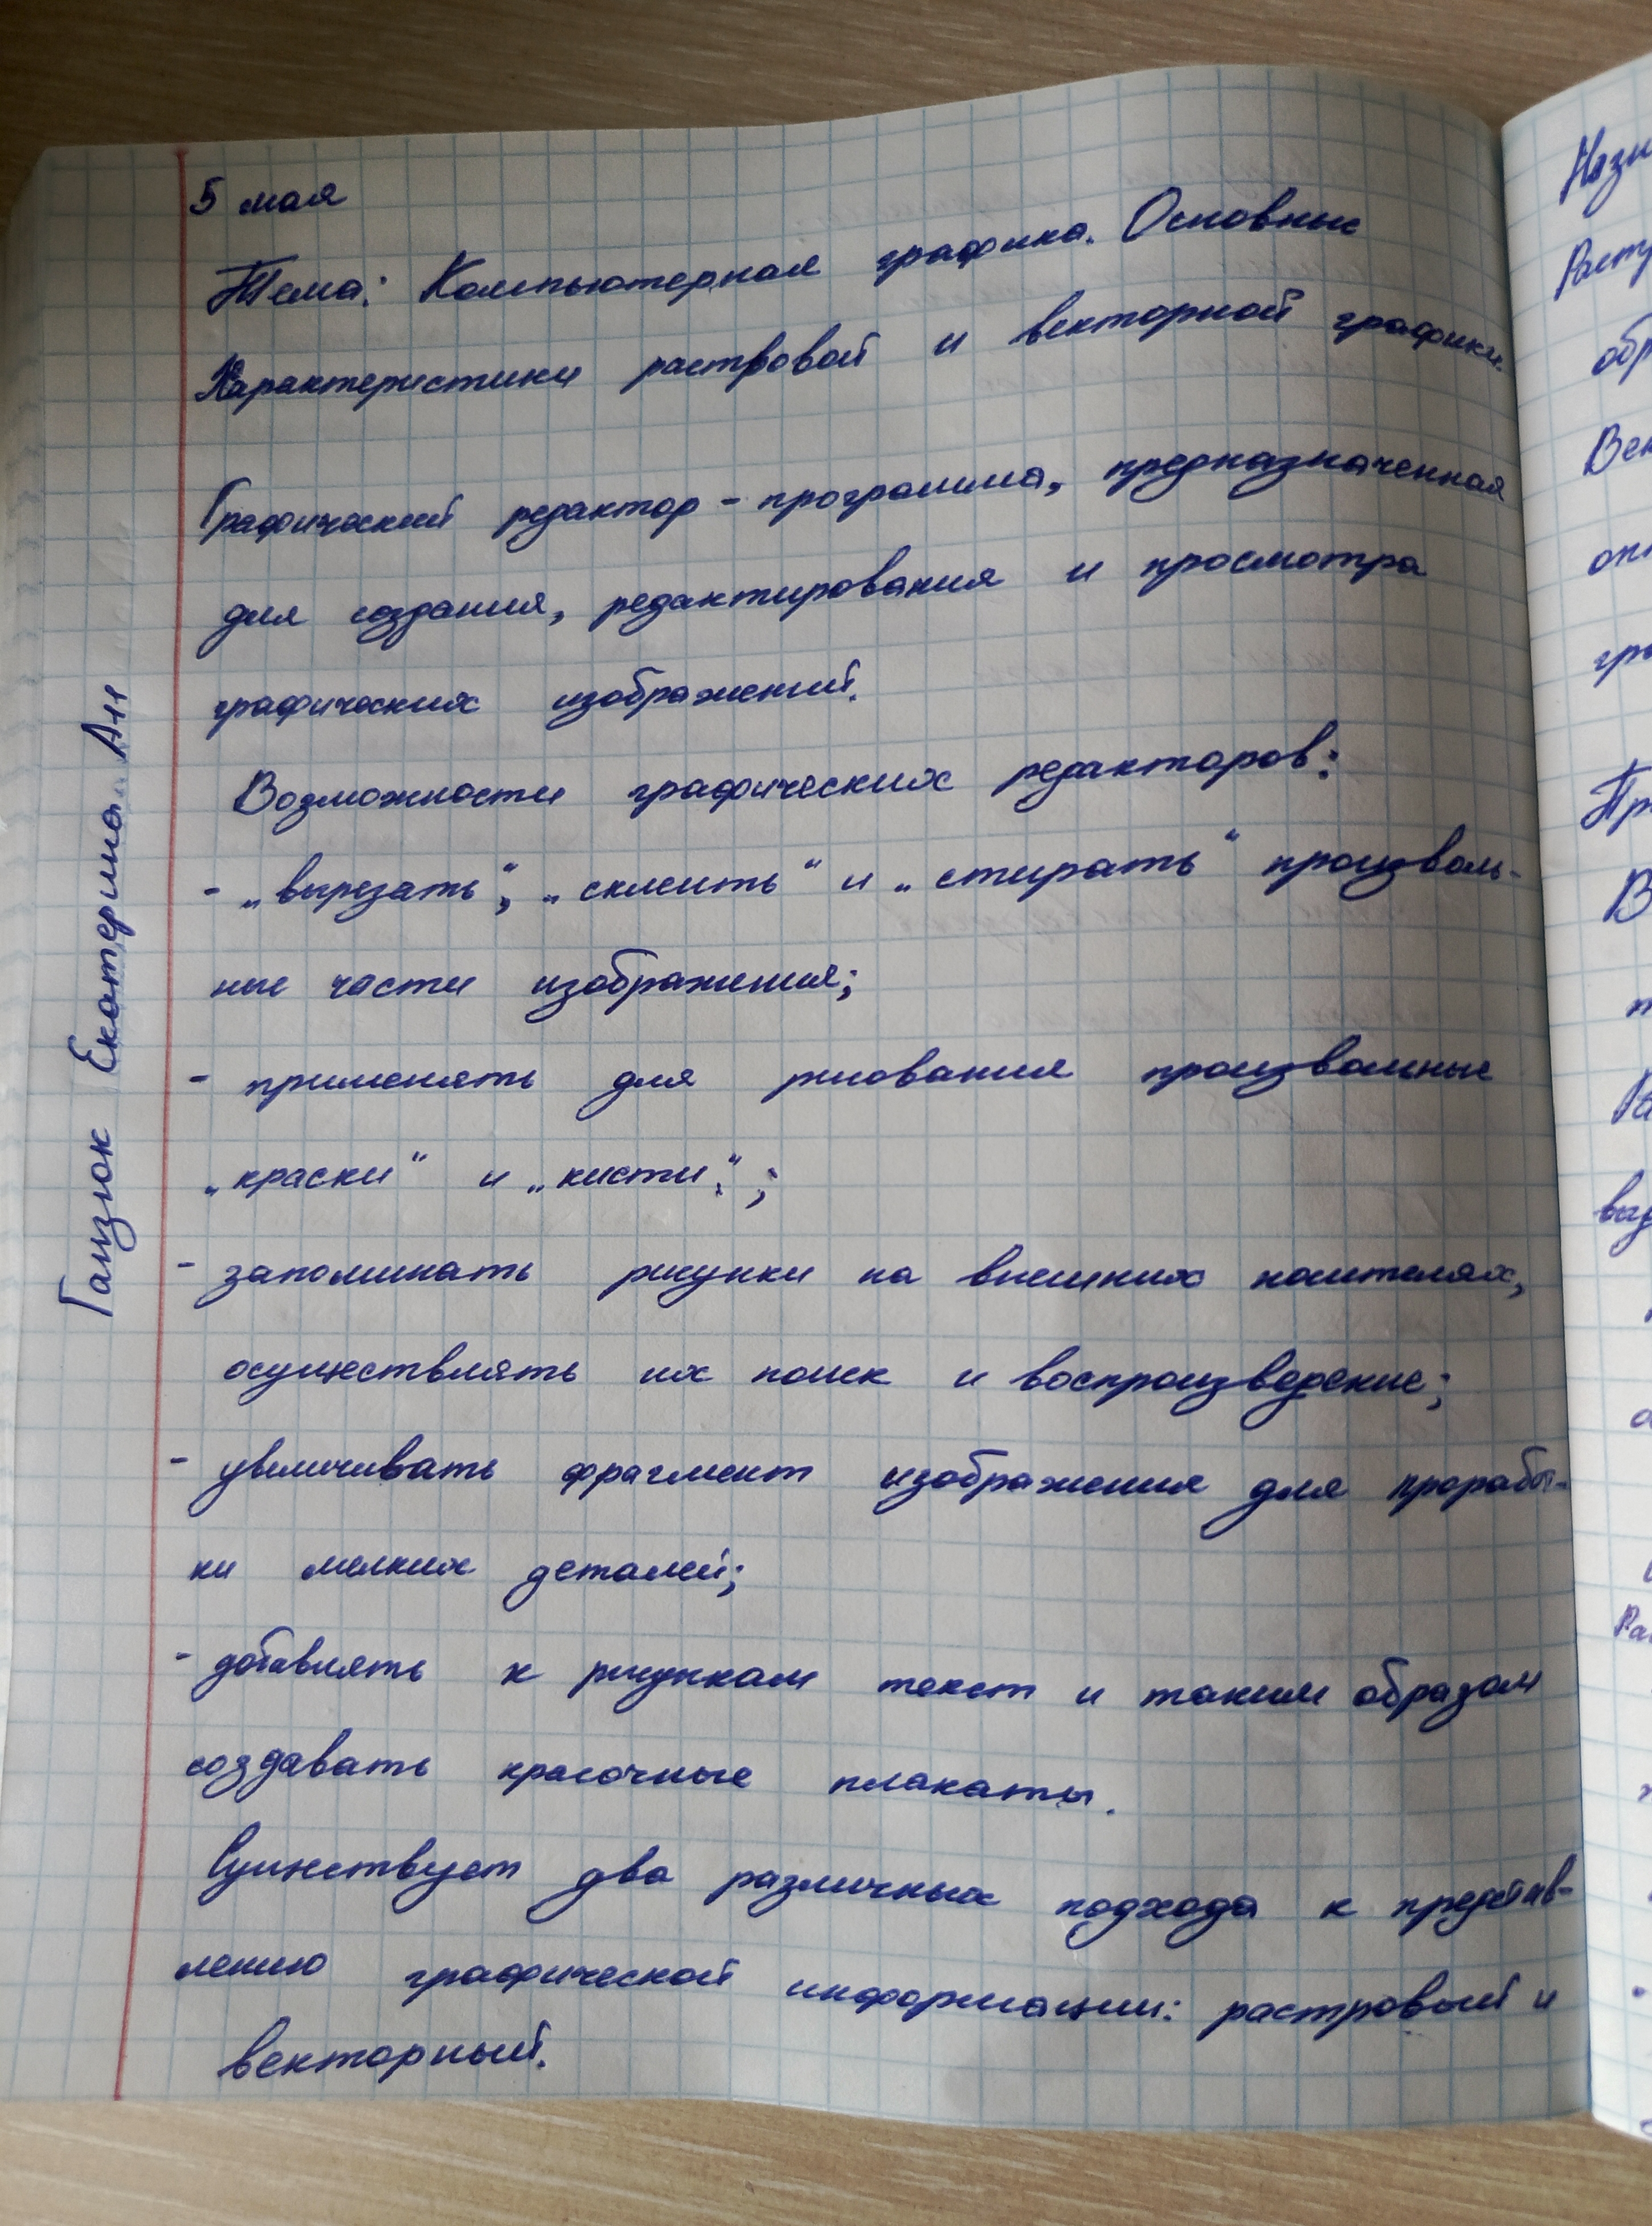 5 мая
Тема: Компьютерная графика. Основные
Характеристики растровой и векторной графики.
Графический редактор - программа, предназначенная
для создания, редактирования и просмотра
графических изображений.
Возможности графических редакторов:
- „вырезать“, „склеить“ и „стирать“ произволь-
ные части изображения;
- применять для рисования произвольные
„краски“ и „кисти“;
- запоминать рисунки на внешних носителях,
осуществлять их поиск и воспроизведение;
- увеличивать фрагмент изображения для проработ-
ки мелких деталей;
- добавлять к рисункам текст и таким образом
создавать красочные плакаты.
Существует два различных подхода к представ-
лению графической информации: растровый и
векторный.
Гамзюк Екатерина А11